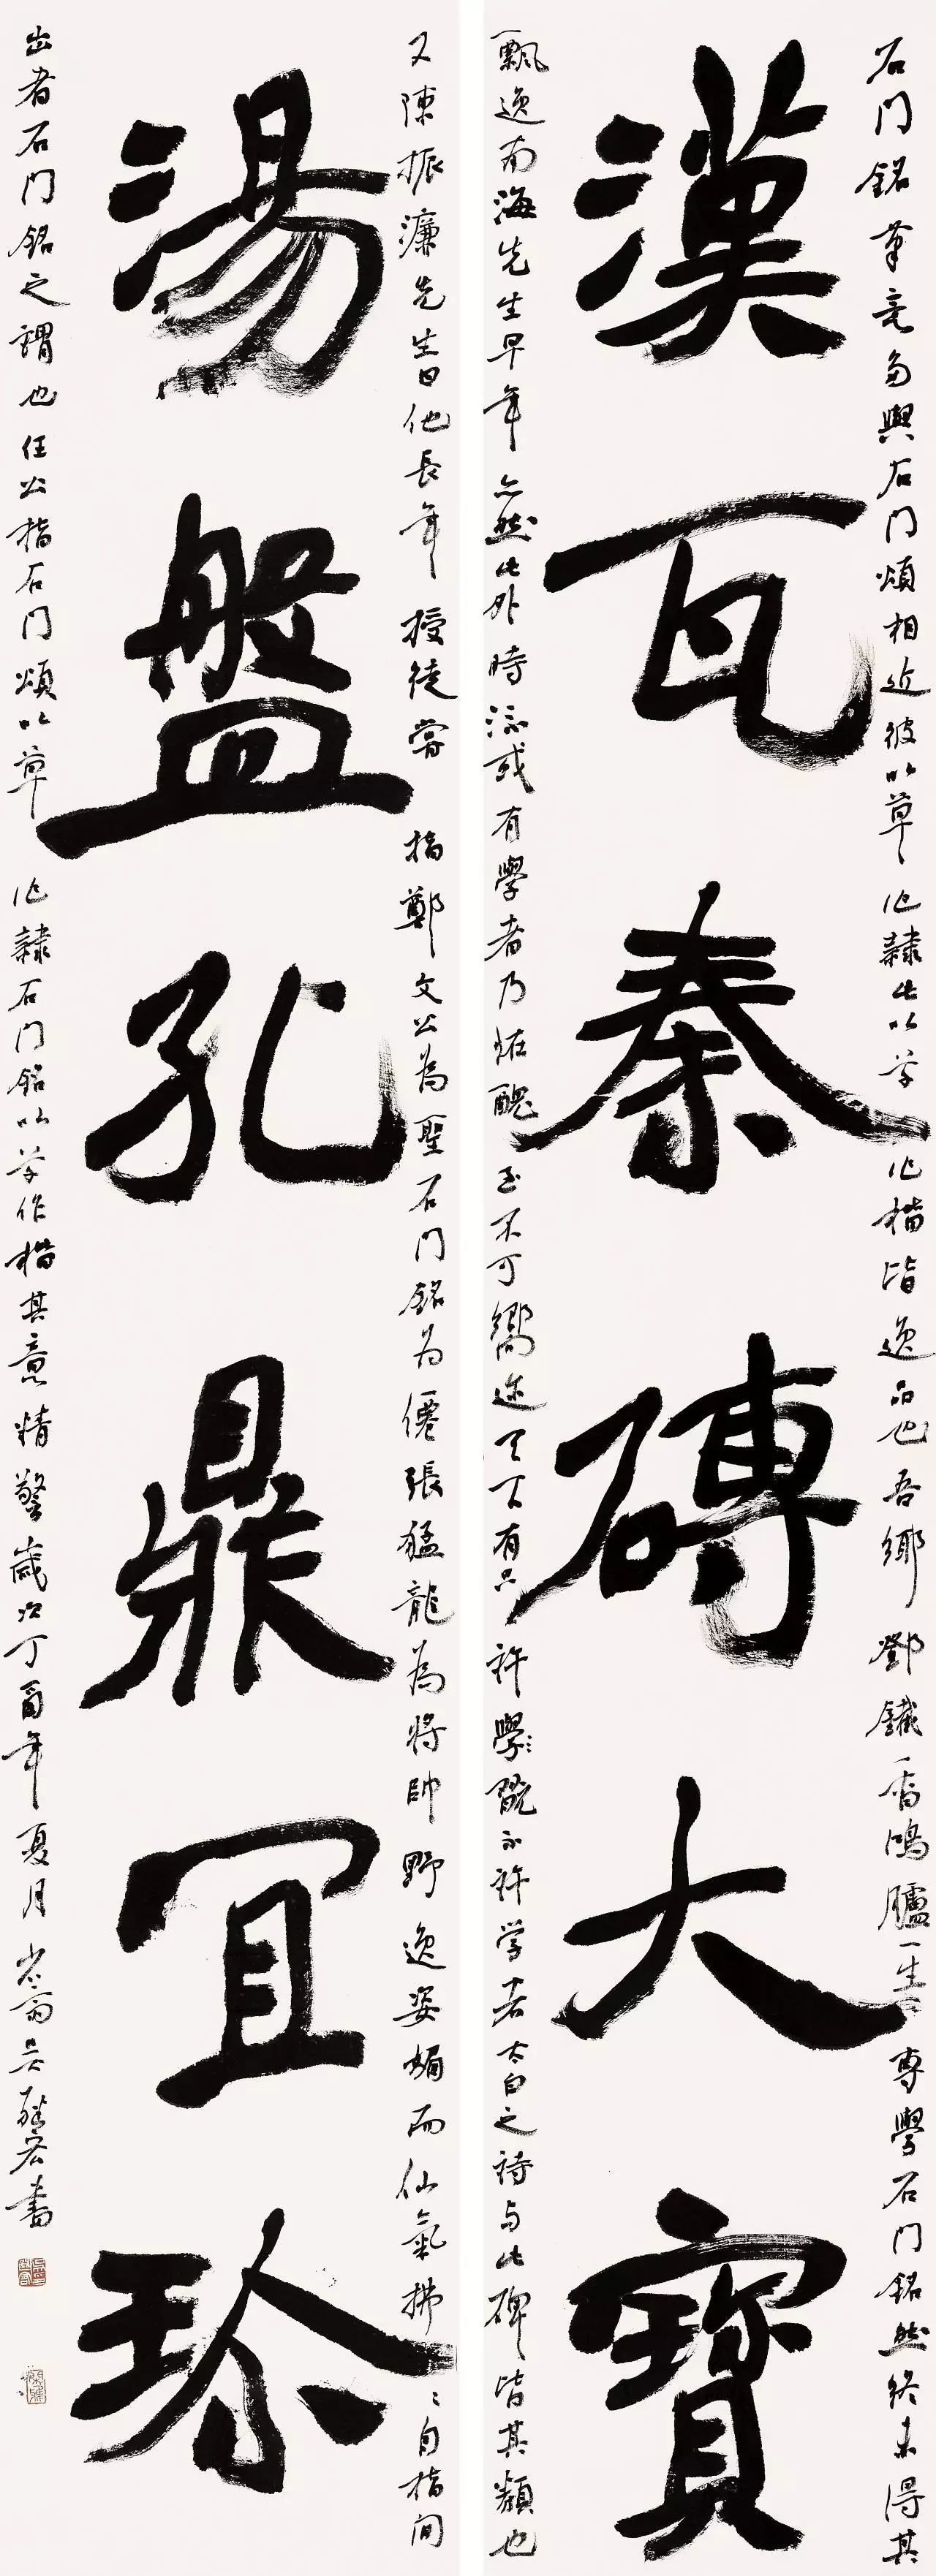 石门銘筆意多與石门頌相近彼以草作隸此以草作楷皆逸品也吾鄉鄧鐵香鴻臚一生專學石门銘然終未得其
漢瓦秦磚大寶
飄逸南海先生早年亦然此外時流或有學者乃怪醜至不可嚮迩天下有只許學既不許学者太白之詩与此碑皆其類也
又陳振濂先生曰他長年授徒嘗指鄭文公為聖石门銘为僊張猛龍為将帥野逸姿媚而仙氣拂拂自指间
湯盤孔鼎宜珍
出者石门銘之謂也任公指石门頌以草作隸石门銘以草作楷其意精警歲次丁酉年夏月